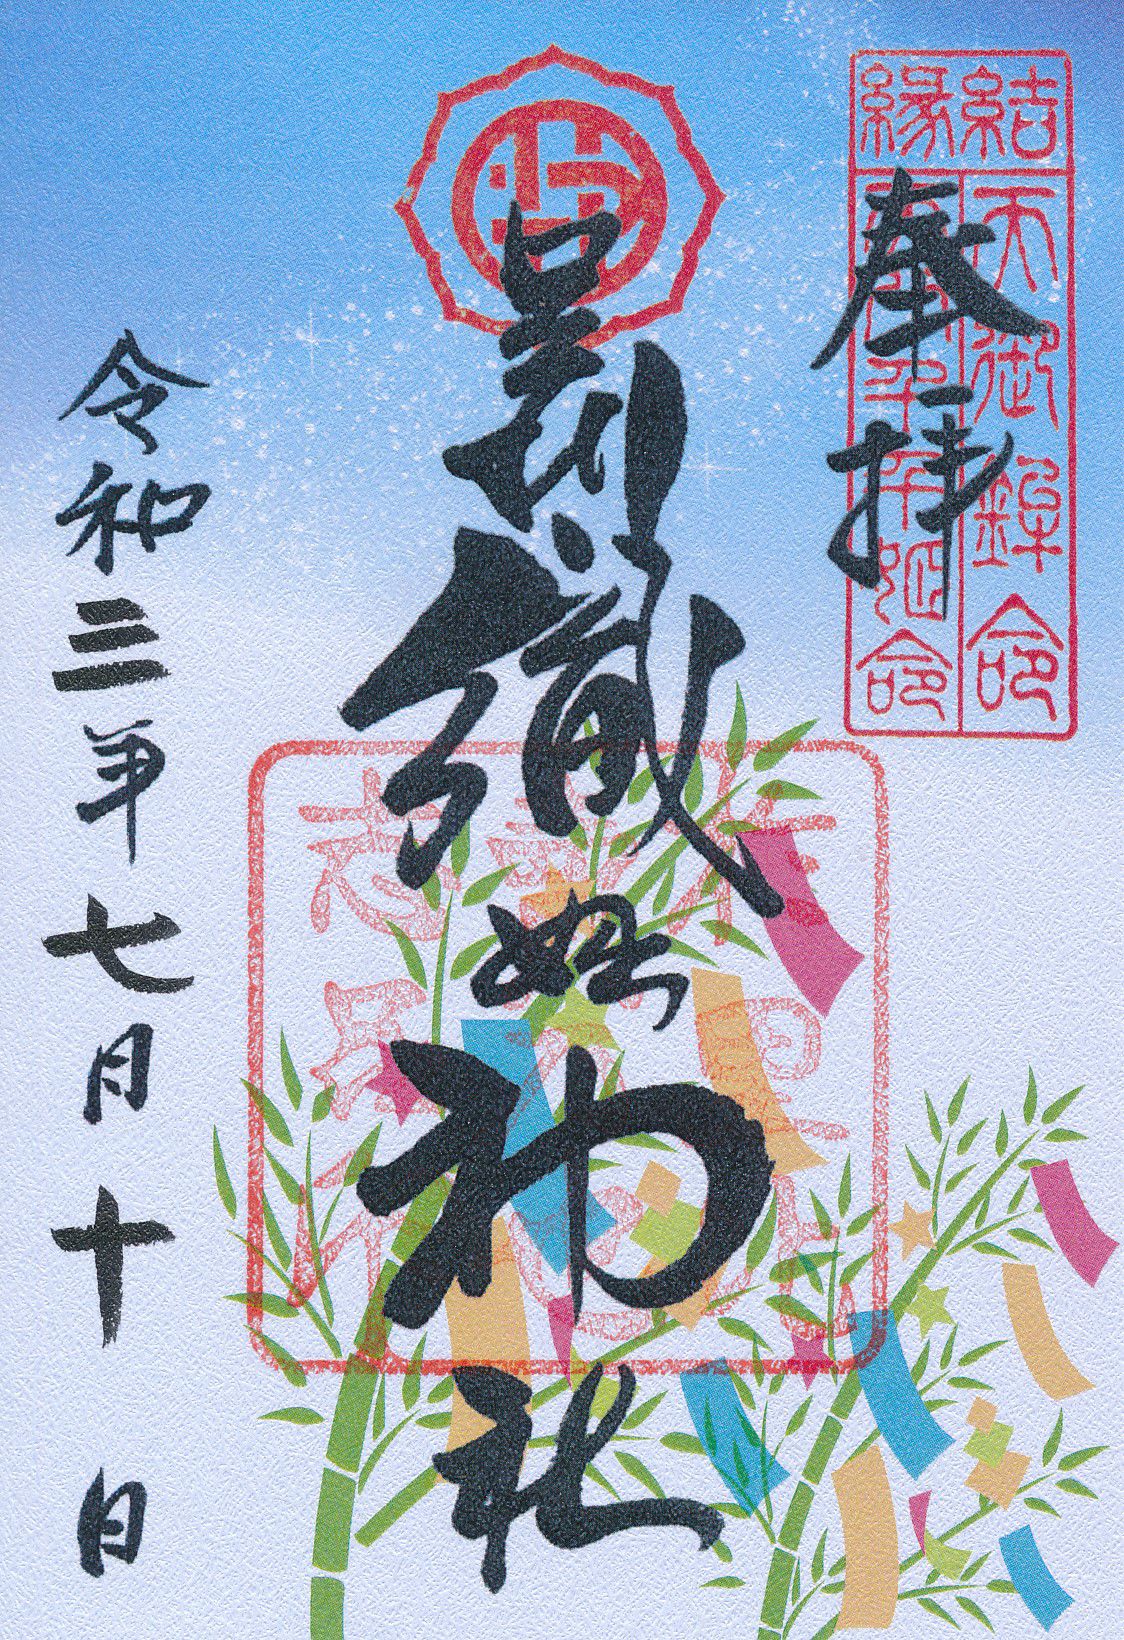 奉拝
結縁
天御鉾命
足利織姫神社
令和三年七月十日